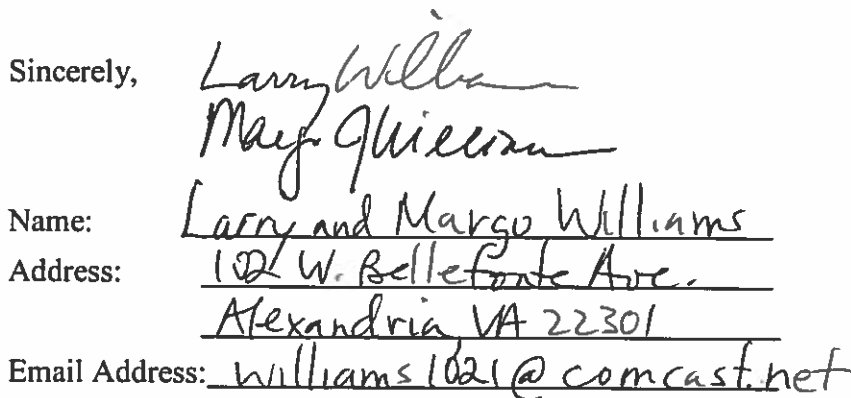 Sincerely, Larry Williams
Margo J Williams
Name: Larry and Margo Williams
Address: 102 W. Bellefonte Ave.
Alexandria VA 22301
Email Address: williams1021@comcast.net